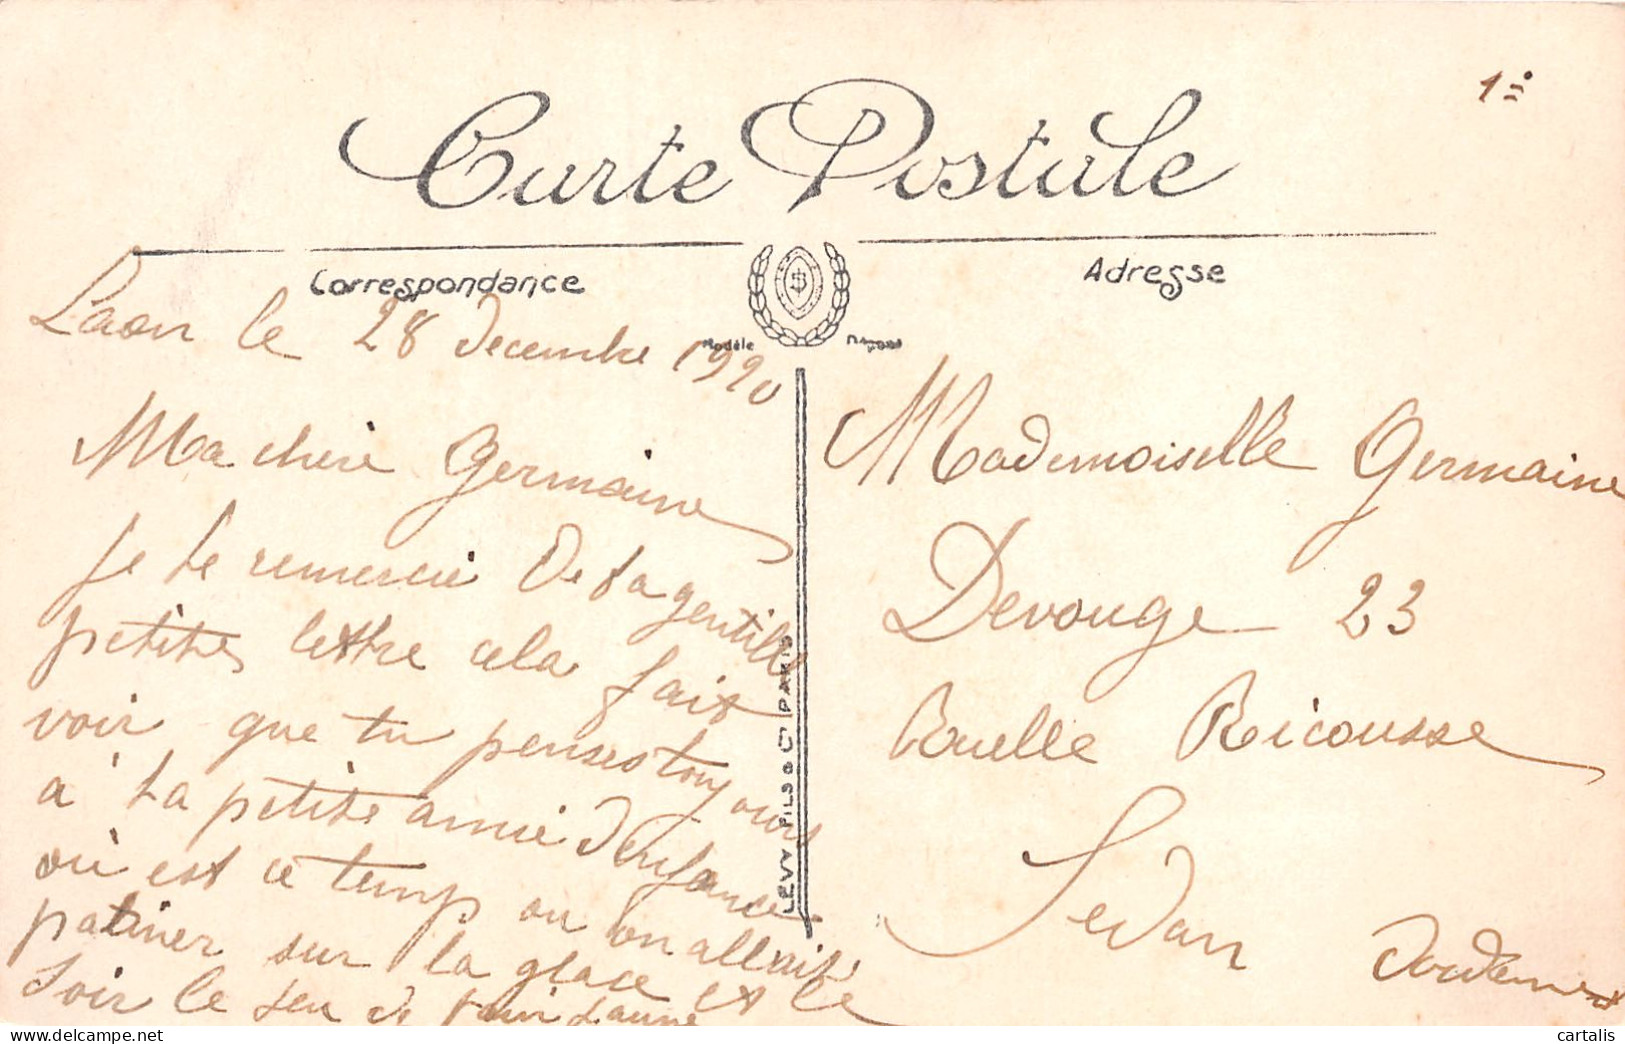 1=
Carte Postale
Correspondance
Adresse
Modèle
Laon le 28 decembre 1920
Ma chère Germaine
je te remercie de ta gentille
petites lettre cela fait
voir que tu penses toujours
à ta petite amie d'enfance
où est ce temps ou on allait
patiner sur la glace et le
soir le jeu de
LEVY FILS & Cie PARIS
Mademoiselle Germaine
Devouge 23
Ruelle Ricousse
Sedan
Ardennes
cartalis